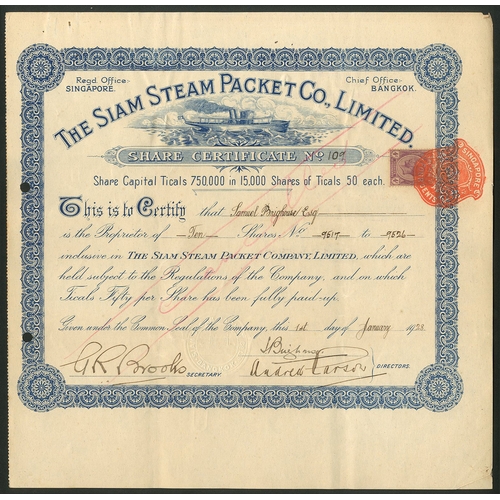 Regd. Office:-
SINGAPORE.
Chief Office:-
BANGKOK.
THE SIAM STEAM PACKET CO., LIMITED.
SHARE CERTIFICATE No 109
Share Capital Ticals 750,000 in 15,000 Shares of Ticals 50 each.
This is to Certify that Samuel Brighouse Esq
is the Proprietor of Ten Shares No 9517 to 9526
inclusive in THE SIAM STEAM PACKET COMPANY LIMITED, which are
held subject to the Regulations of the Company, and on which
Ticals Fifty per Share has been fully paid-up.
Given under the Common Seal of the Company, this 1st day of January 1923.
G.R. Brooks
SECRETARY.
Andrew Carson
DIRECTORS.
SINGAPORE